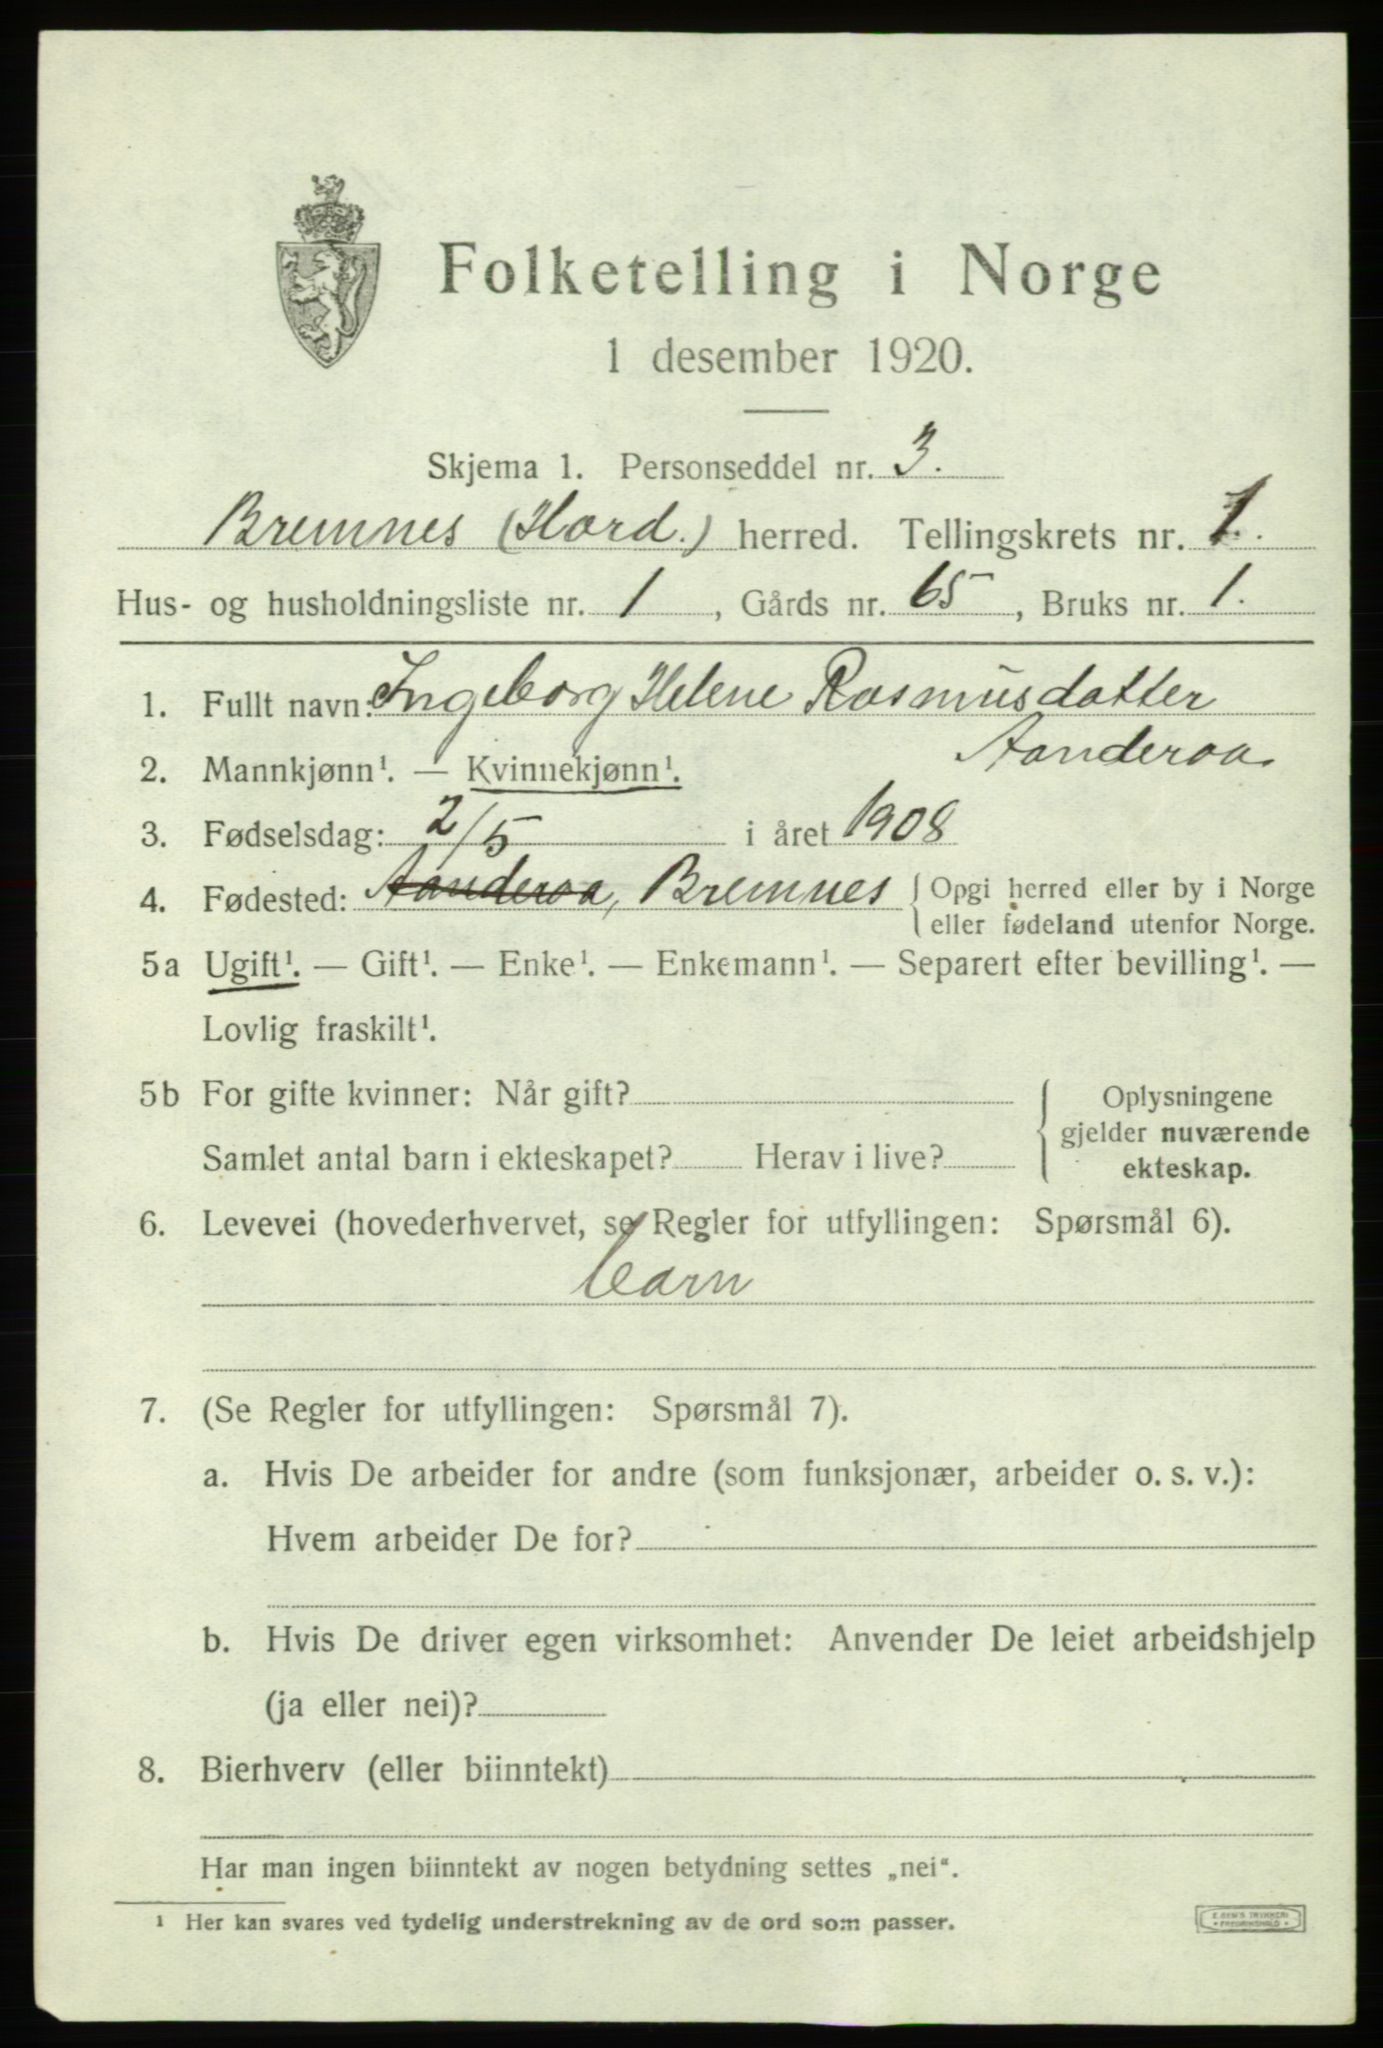 Folketelling i Norge
1 desember 1920.
Skjema 1. Personseddel nr. 3.
Bremnes (Hord.) herred. Tellingskrets nr. 1.
Hus- og husholdningsliste nr. 1, Gårds nr. 65, Bruks nr. 1.
1. Fullt navn: Ingeborg Helene Rasmusdatter
Aanderaa.
2. Mannkjønn¹. — Kvinnekjønn¹.
3. Fødselsdag: 2/5 i året 1908
4. Fødested: Aanderaa, Bremnes { Opgi herred eller by i Norge
eller fødeland utenfor Norge.
5a Ugift¹. — Gift¹. — Enke¹. — Enkemann¹. — Separert efter bevilling¹. —
Lovlig fraskilt¹.
5b For gifte kvinner: Når gift?
Samlet antal barn i ekteskapet? Herav i live?
Oplysningene
gjelder nuværende
ekteskap.
6. Levevei (hovederhvervet, se Regler for utfyllingen: Spørsmål 6).
barn
7. (Se Regler for utfyllingen: Spørsmål 7).
a. Hvis De arbeider for andre (som funksjonær, arbeider o. s. v.):
Hvem arbeider De for?
b. Hvis De driver egen virksomhet: Anvender De leiet arbeidshjelp
(ja eller nei)?
8. Bierhverv (eller biinntekt)
Har man ingen biinntekt av nogen betydning settes „nei“.
¹ Her kan svares ved tydelig understrekning av de ord som passer.
E. SEM'S TRYKKERI
FREDRIKSHALD